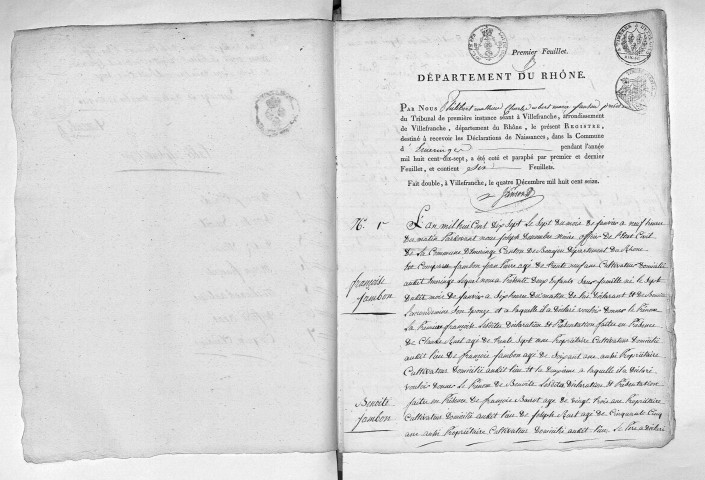 Premier Feuillet.
DÉPARTEMENT DU RHÔNE.
PAR NOUS
du Tribunal de première instance séant à Villefranche, arrondissement
de Villefranche, département du Rhône, le présent REGISTRE,
destiné à recevoir les Déclarations de Naissances, dans la Commune
d' pendant l'année
mil huit cent-dix-sept, a été coté et paraphé par premier et dernier
Feuillet, et contient six Feuillets.
Fait double, à Villefranche, le quatre Décembre mil huit cent seize.
N.º 1er
L'an mil huit Cent dix Sept le Sept du mois de fevrier a neuf heures
du matin Pardevant nous Joseph maire officier de l'Etat Civil
de La Commune Canton de Beaujeu Département du Rhône
Est Comparu fambon jean pierre agé de trente neuf ans Cultivateur domicilié
françoise
fambon
audit lequel nous a Présenté deux Enfants Sexe femelle né le Sept
dudit mois de fevrier a heures du matin de lui déclarant et de
Son Epouse et a laquelle il a déclaré vouloir donner le Prénom
La Premiere françoise Lesdittes déclaration Et Présentation faites en Présence
de Claude agé de trente Sept ans Propriétaire Cultivateur domicilié
audit Lieu Et de françois fambon age de Soixante ans autre Propriétaire
Cultivateur domicilié audit lieu Et la deuxieme a laquelle il a déclaré
vouloir donner Le Prénom de Benoite Lesdita déclaration Et Présentation
Benoite
fambon
faites en Présence de françois age de vingt trois ans Propriétaire
Cultivateur domicilié audit Lieu Et de Joseph age de Cinquante Cinq
ans autre Propriétaire Cultivateur domicilié audit lieu Le Pere a déclaré